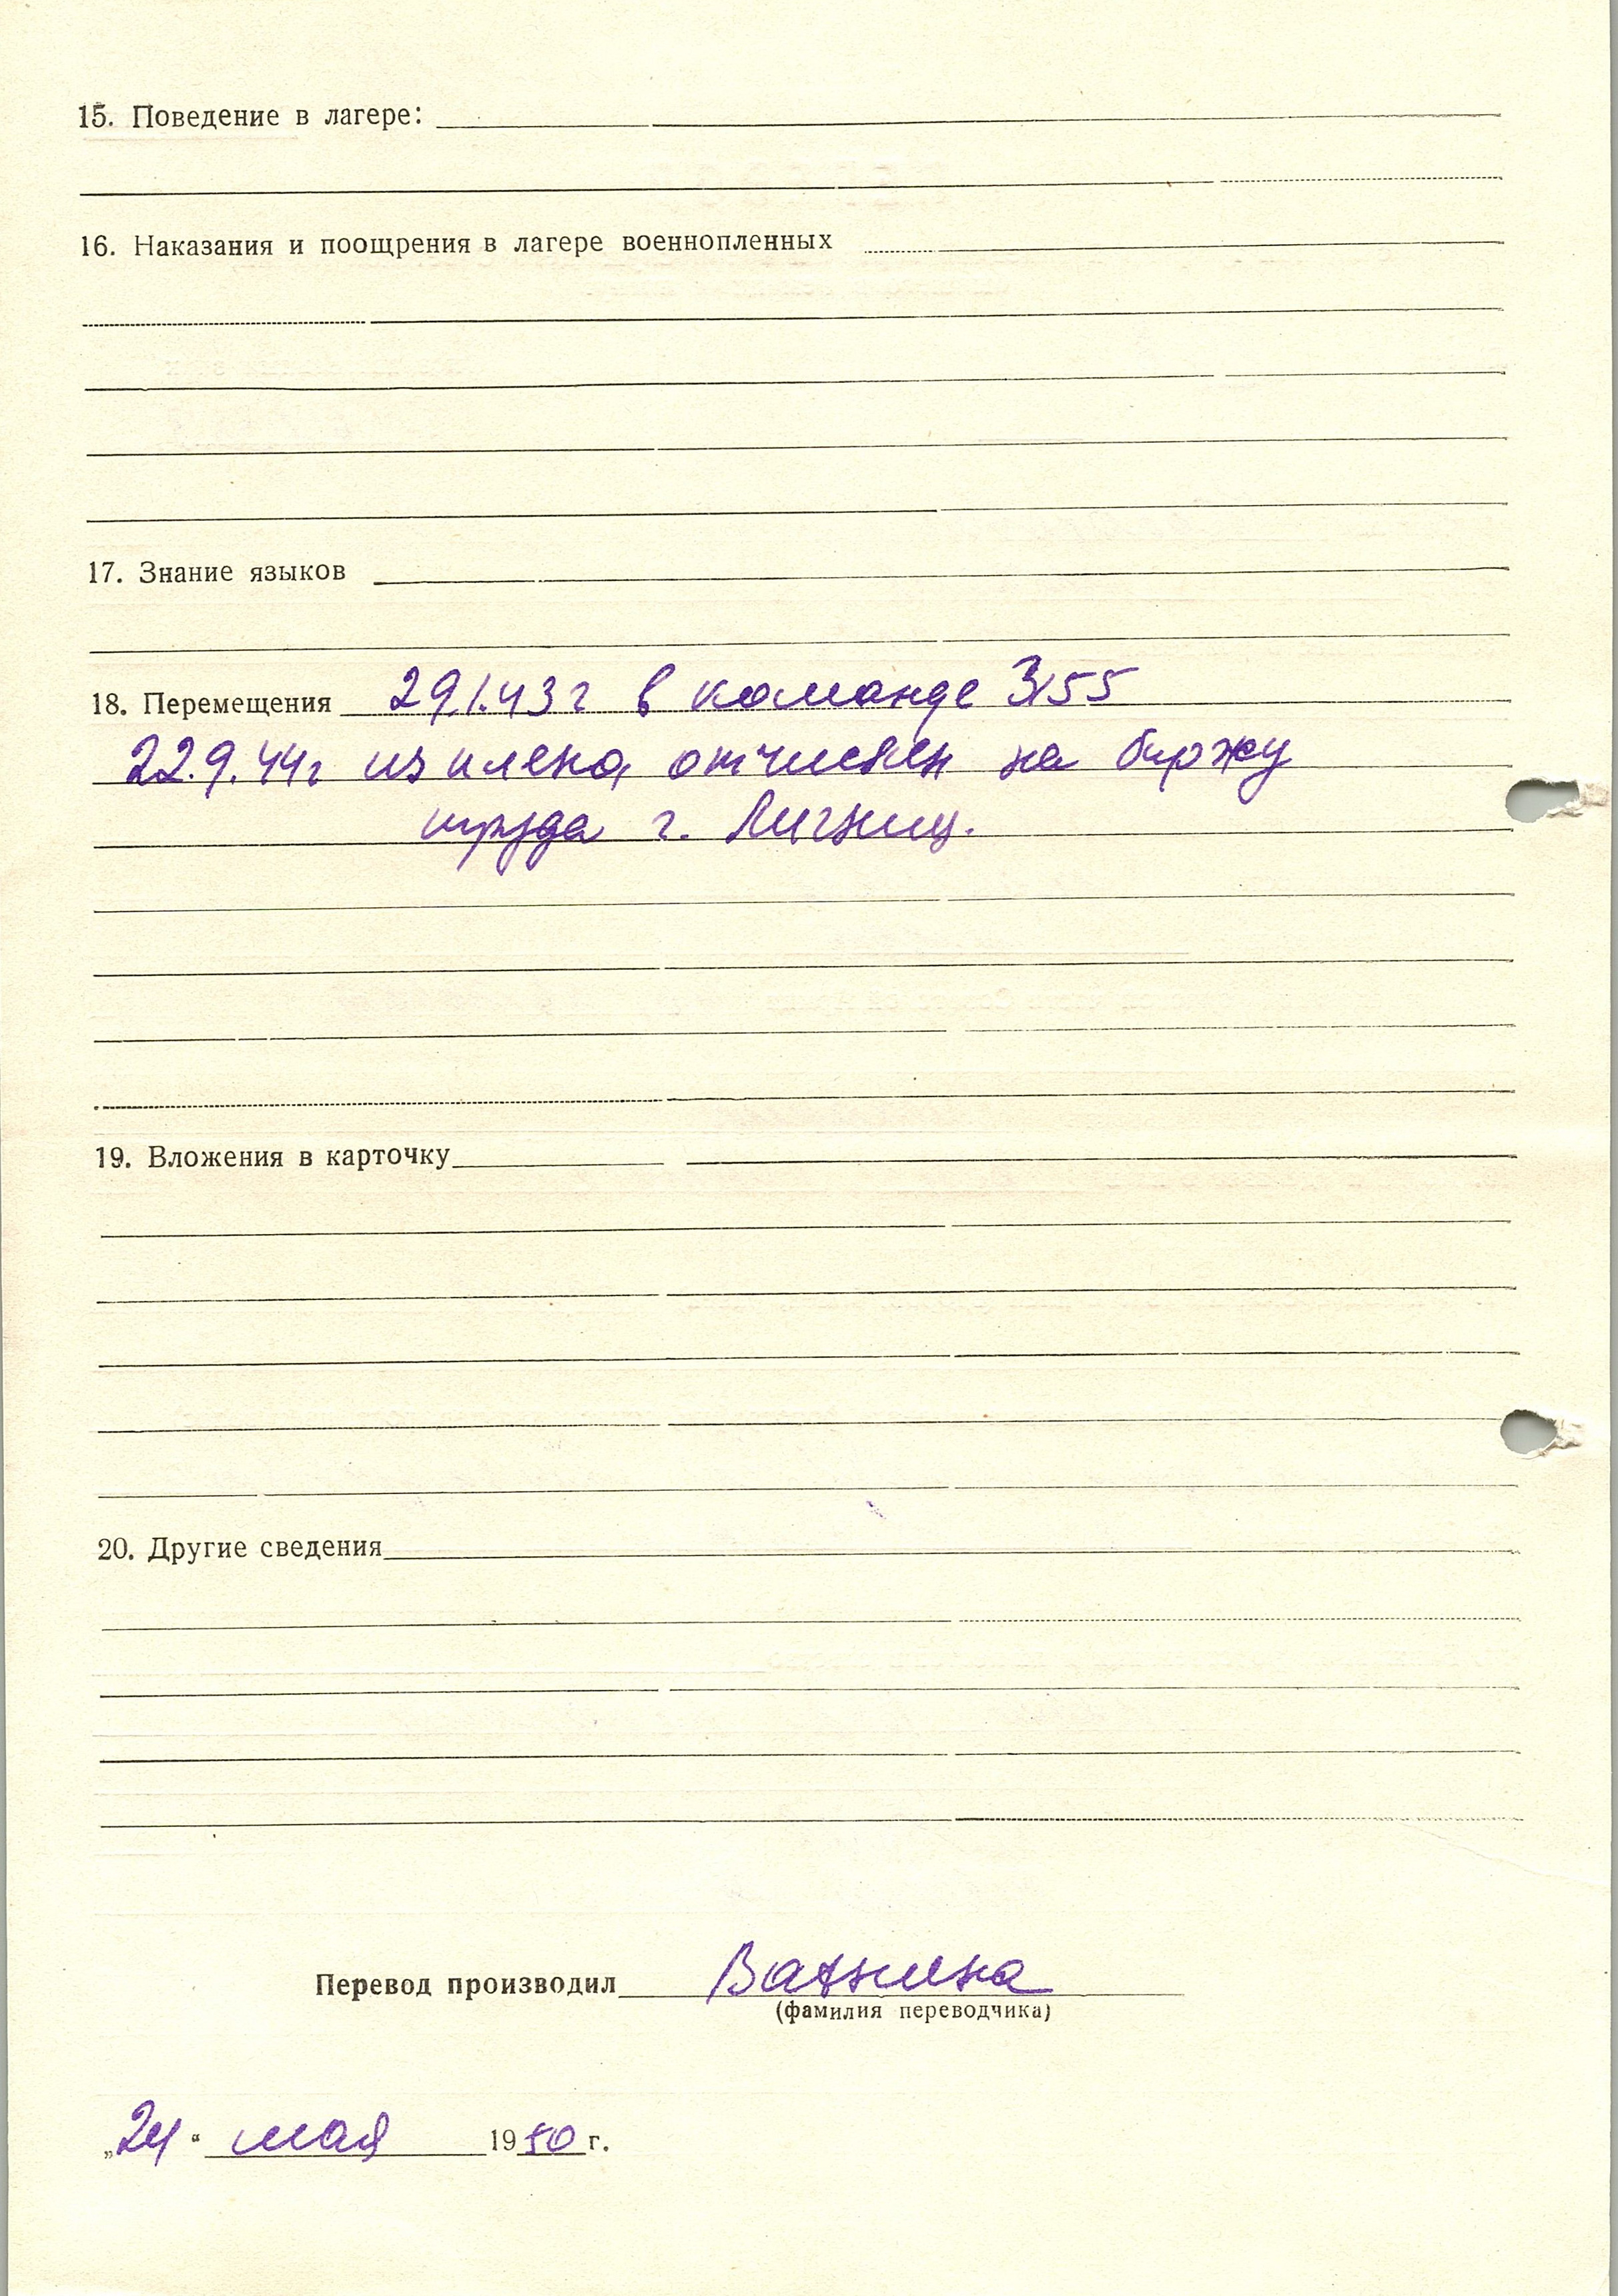 15. Поведение в лагере:
16. Наказания и поощрения в лагере военнопленных
17. Знание языков
18. Перемещения 29.1.43 г в команде 3155
22.9.44 г из плена отчислен на биржу
труда г. Лигниц.
19. Вложения в карточку
20. Другие сведения
Перевод производил Ватнина
(фамилия переводчика)
„24“ мая 1950 г.